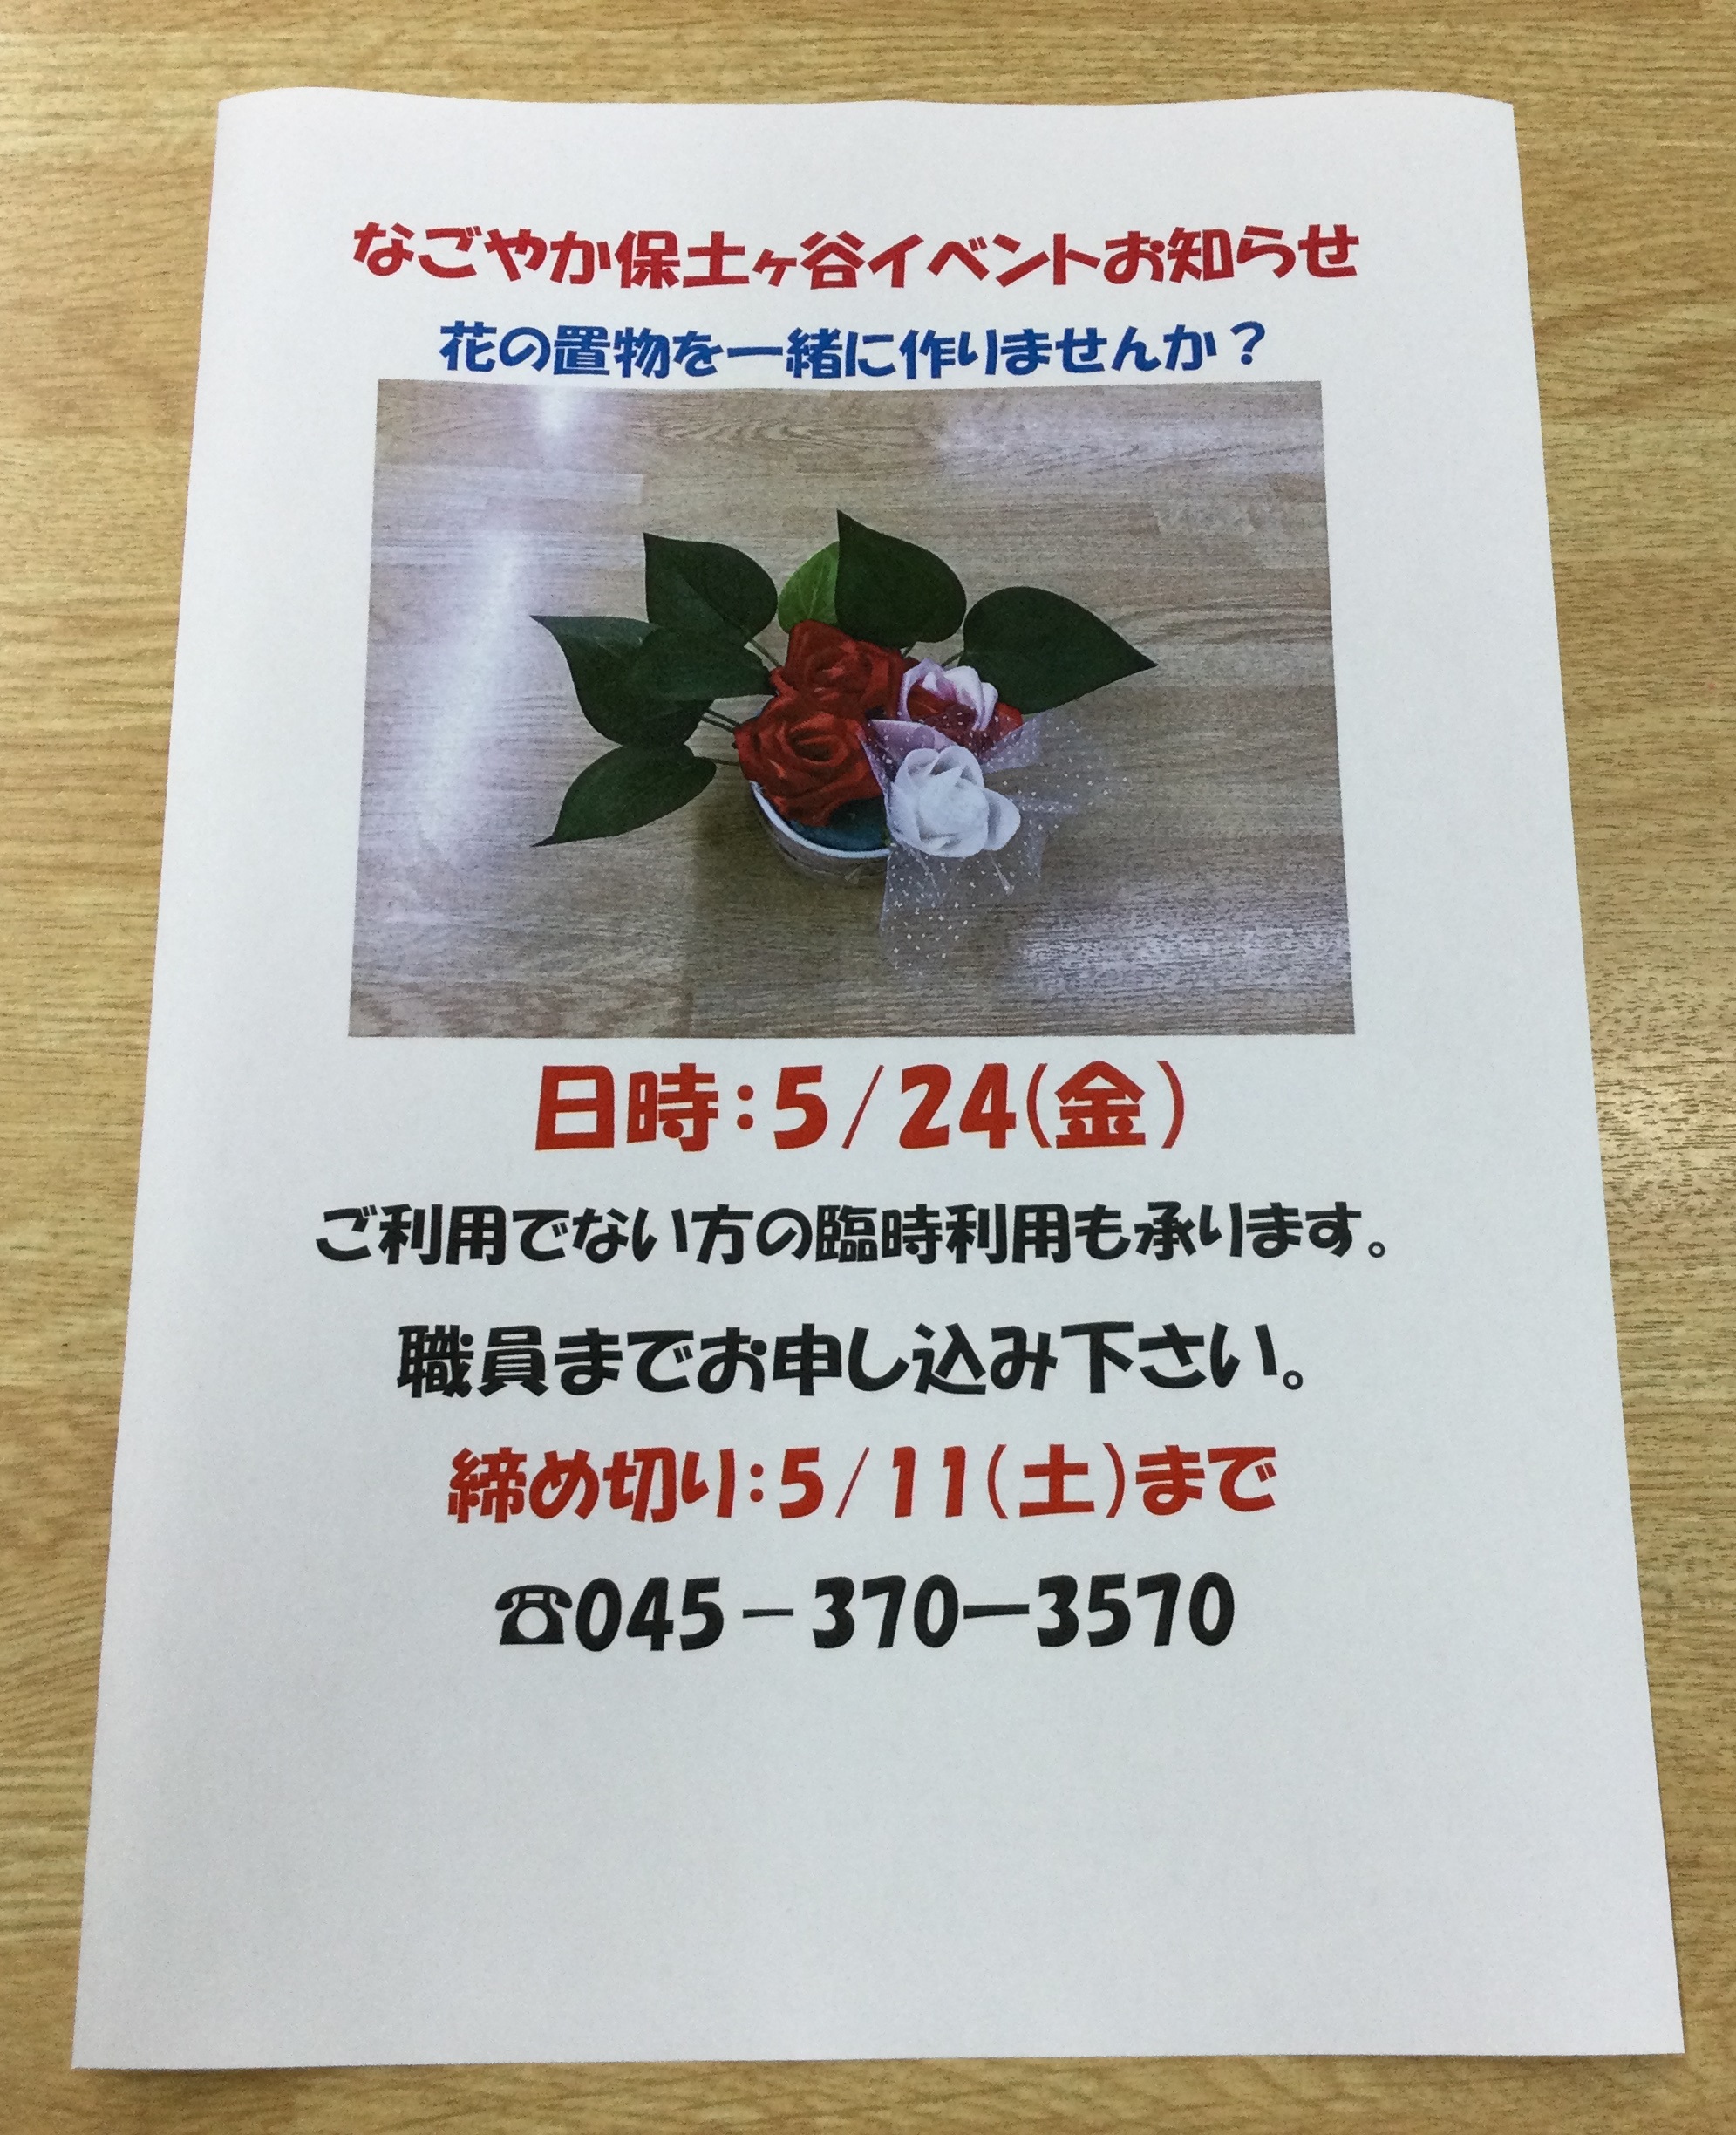 なごやか保土ヶ谷イベントお知らせ
花の置物を一緒に作りませんか？
日時：5/24（金）
ご利用でない方の臨時利用も承ります。
職員までお申し込み下さい。
締め切り：5/11（土）まで
☎045－370ー3570